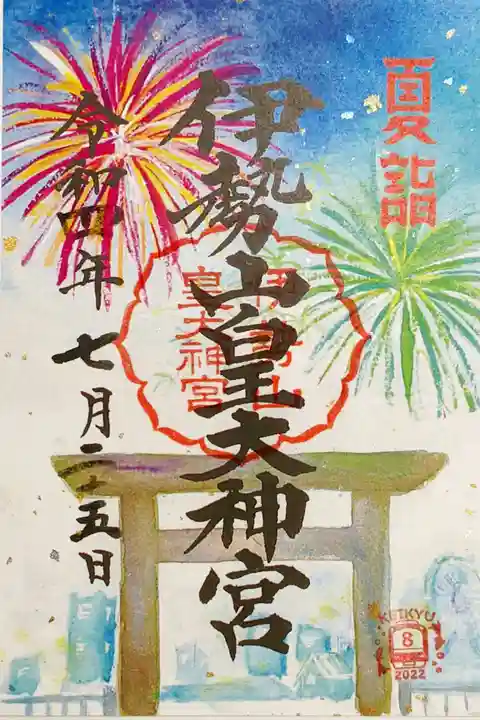 夏詣
伊勢山皇大神宮
伊勢山
皇大神宮
令和四年七月二十五日
KEIKYU
8
2022